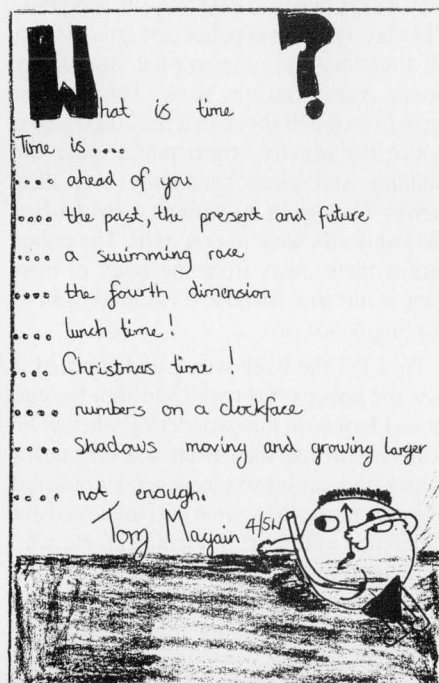 What is time ?
Time is ....
.... ahead of you
.... the past, the present and future
.... a swimming race
.... the fourth dimension
.... lunch time!
.... Christmas time!
.... numbers on a clockface
.... Shadows moving and growing larger
.... not enough.
Tony Magain 4/5W